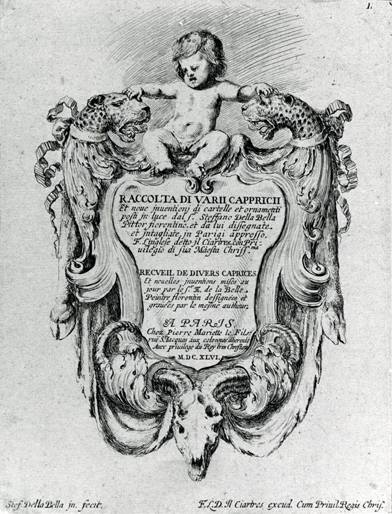 1.
RACCOLTA DI VARII CAPPRICII
Et noue inuentionj di cartelle et ornamenti
posti jn luce dal s.r Steffano Della Bella
Pittor fiorentino, et da lui disegnate,
et intagliate, in Parigi appresso,
F. L'inglese detto jl Ciartres, con Pri-
uilegio di sua Maestà Christ.ma
RECUEIL DE DIVERS CAPRICES
Et nouelles jnuentions mises au
jour par le s.r E. de la Belle,
Peintre florentin dessignées et
grauées par le mesme autheur,
A PARIS,
Chez Pierre Mariette le Fils,
rue S. Iacques aux
Auec priuilege du Roy tres Chrestien
M.DC.XLVI.
Stef. Della Bella jn. fecit.
F.L.D. Jl Ciartres excud. Cum Priuil. Regis Chris.